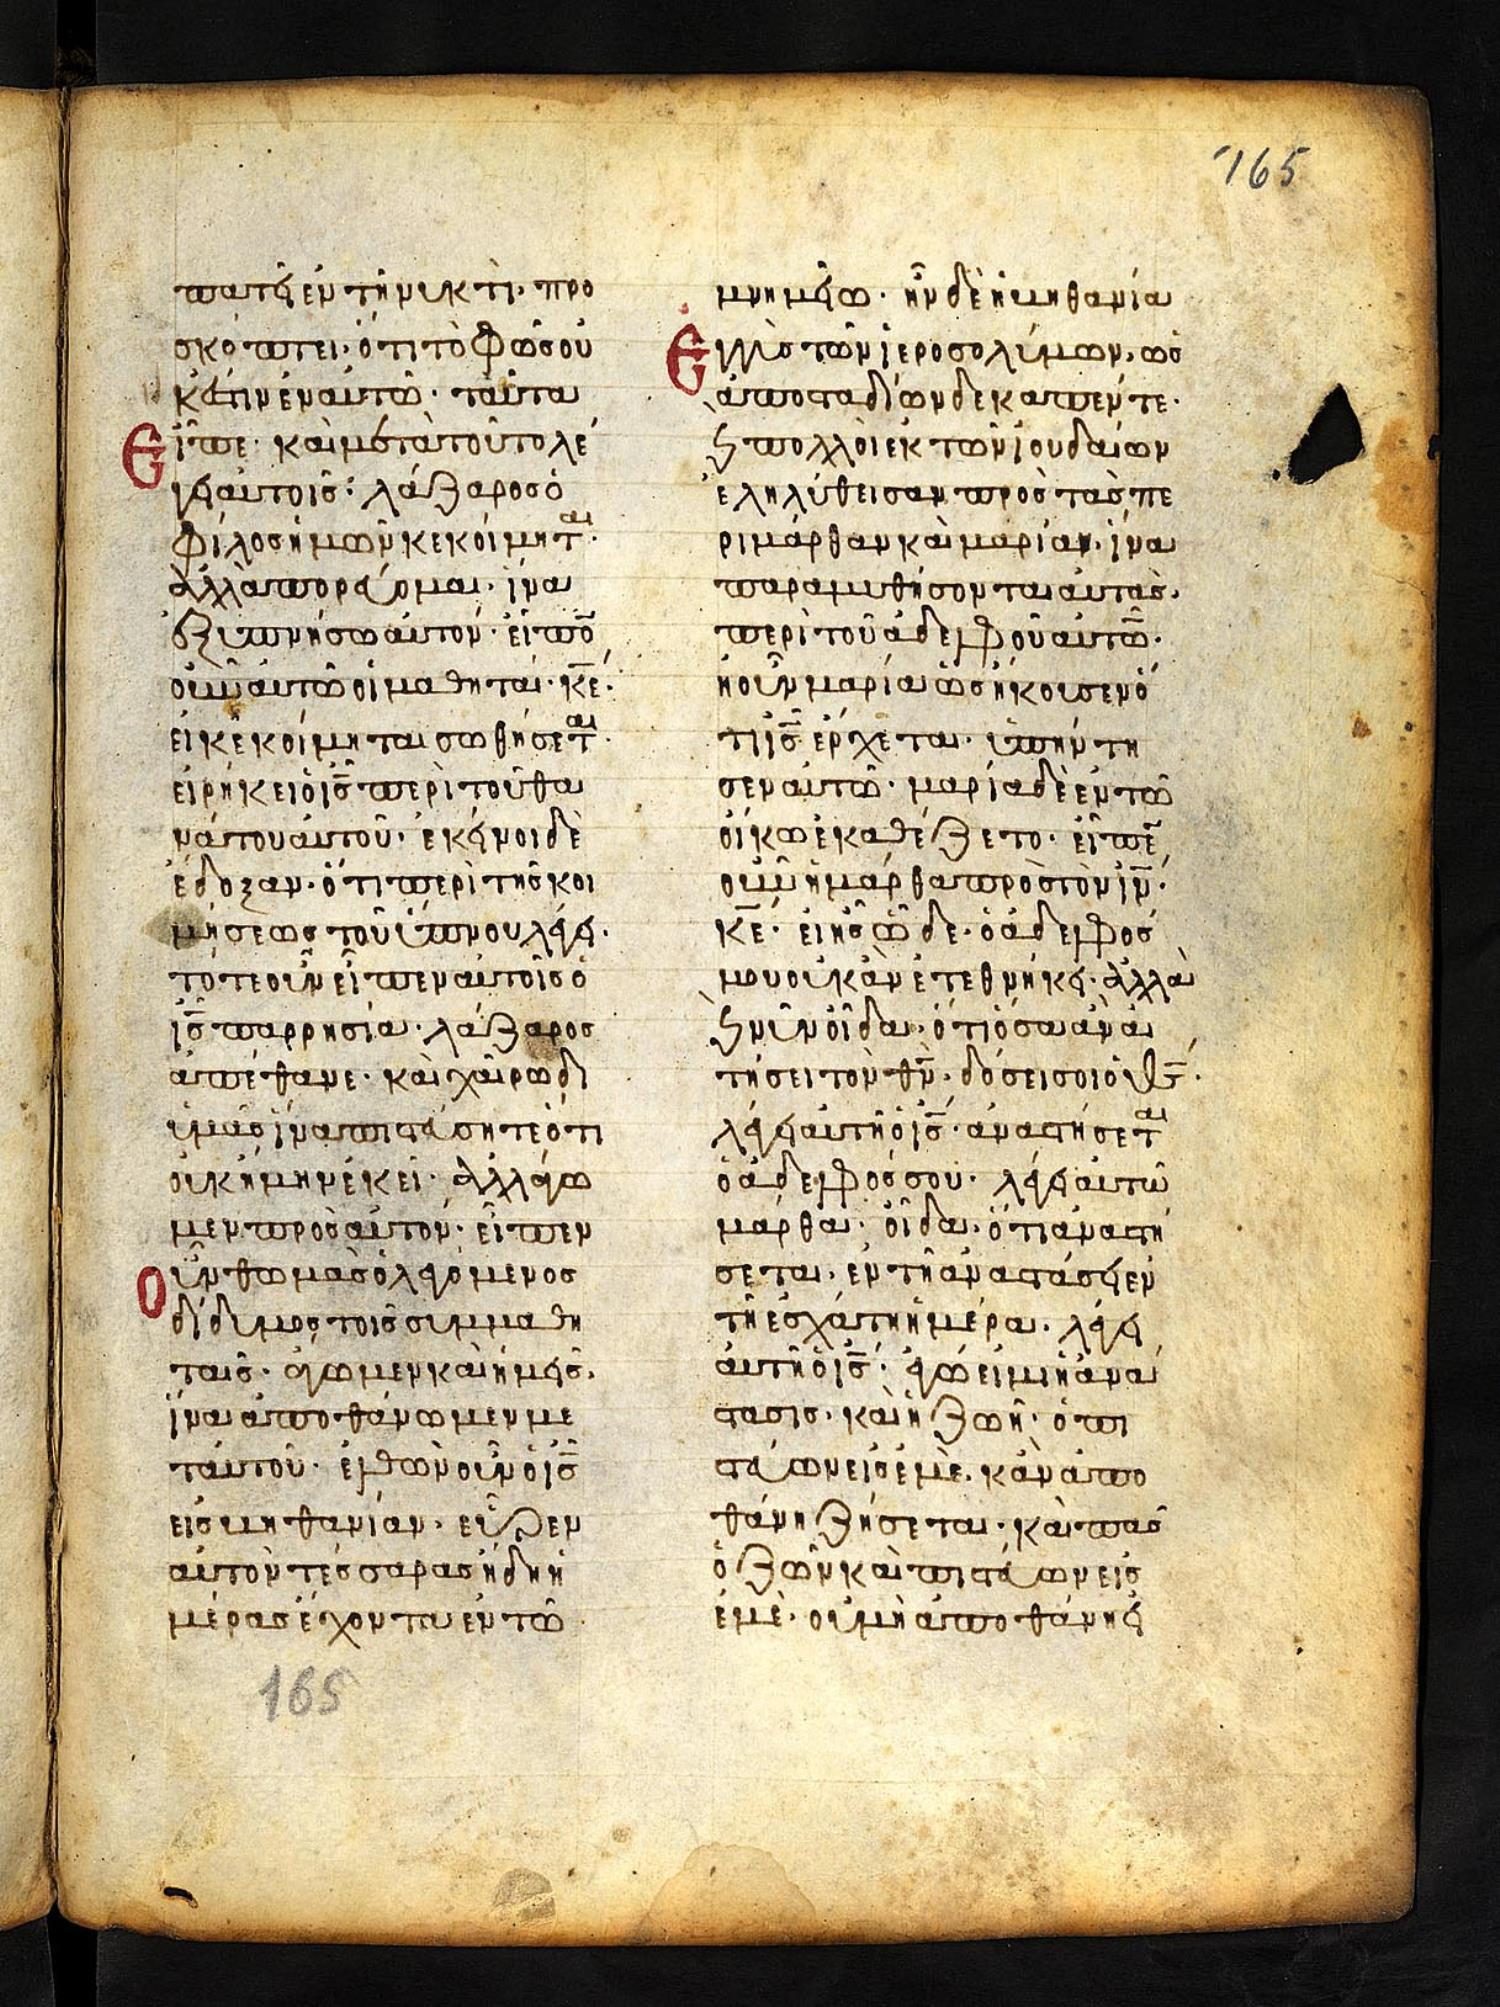 165
πατεῖ ἐν τῆ νυκτὶ· προ
σκόπτει· ὅτι τὸ φῶς οὐ
κἔστιν ἐν αὐτῶ· ταῦτα
εἶπε· καὶ μετὰ τοῦτο λέ
γει αὐτοῖς· λάζαρος ὁ
φίλος ἡμῶν κεκοίμηται·
ἀλλὰ πορεύομαι· ἵνα
ἐξυπνήσω αὐτόν· εἶπο̄
οὖν αὐτῶ οἱ μαθηταί· κ̅ε̅·
εἰ κεκοίμηται σωθήσεται·
εἰρήκει ὁ ι̅ς̅ περὶ τοῦ θα
νάτου αὐτοῦ· ἐκεῖνοι δὲ
ἔδοξαν· ὅτι περὶ τῆς κοι
μήσεως τοῦ ὕπνου λέγει·
τότε οὖν εἶπεν αὐτοῖς ὁ
ι̅ς̅ παρρησία· λάζαρος
ἀπέθανε· καὶ χαίρω δι
ὑμᾶς ἵνα πιστεύσητε ὅτι
οὐκ ἤμην ἐκεῖ· ἀλλ' ἄγω
μεν πρὸς αὐτόν· εἶπεν
οὖν θωμᾶς ὁ λεγόμενος
δίδυμος τοῖς συμμαθη
ταῖς· ἄγωμεν καὶ ἡμεῖς·
ἵνα ἀποθάνωμεν με
τ' αὐτοῦ· ἐλθὼν οὖν ὁ ι̅ς̅
εἰς βηθανίαν· εὗρεν
αὐτὸν τέσσαρας ἤδη ἡ
μέρας ἔχοντα ἐν τῶ
165
μνημείω· ἦν δὲ ἡ βηθανία
ἐγγὺς τῶν ἱεροσολύμων· ὡς
ἀπὸ σταδίων δεκαπέντε·
ϗ πολλοὶ ἐκ τῶν ἰουδαίων
ἐληλύθεισαν πρὸς τὰς πε
ρὶ μάρθαν καὶ μαρίαν· ἵνα
παραμυθήσονται αὐτὰς·
περὶ τοῦ ἀδελφοῦ αὐτῶ̄·
ἡ οὖν μαρία ὡς ἤκουσεν ὅ
τι ι̅ς̅ ἔρχεται· ὑπήντη
σεν αὐτῶ· μαρία δὲ ἐν τῶ
οἴκω ἐκαθέζετο· εἶπε̄
οὖν ἡ μάρθα πρὸς τὸν ι̅ν̅·
κ̅ε̅· εἰ ἦς ὧδε· ὁ ἀδελφός
μου οὐκ ἂν ἐτεθνήκει· ἀλλὰ
ϗ νῦν οἶδα· ὅτι ὅσα ἂν αἰ
τήσει τὸν θ̅ν̅· δόσει σοι ὁ θ̅ς̅·
λέγει αὐτῆ ὁ ι̅ς̅· ἀναστήσεται
ὁ ἀδελφός σου· λέγει αὐτῶ
μάρθα· οἶδα· ὅτι ἀναστή
σεται· ἐν τῆ ἀναστάσει ἐν
τῆ ἐσχάτη ἡμέρα· λέγει
αὐτῆ ὁ ι̅ς̅· ἐγώ εἰμι ἡ ἀνά
στασις· καὶ ἡ ζωὴ· ὁ πι
στεύων εἰς ἐμὲ· κἂν ἀπο
θάνη ζήσεται· καὶ πᾶς
ὁ ζῶν καὶ πιστεύων εἰς
ἐμὲ· οὐ μὴ ἀποθάνη εἰ